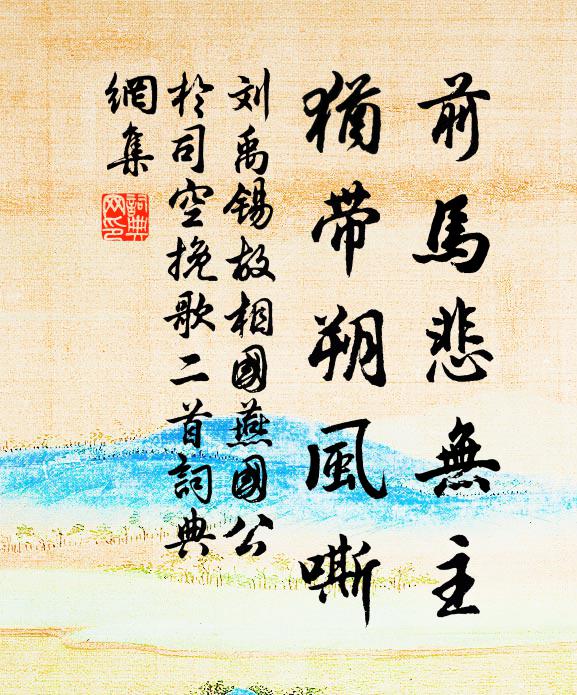 前馬悲無主
猶帶朔風嘶
刘禹锡故相國燕國公
於司空挽歌二首詞典
網集
詞典
网印